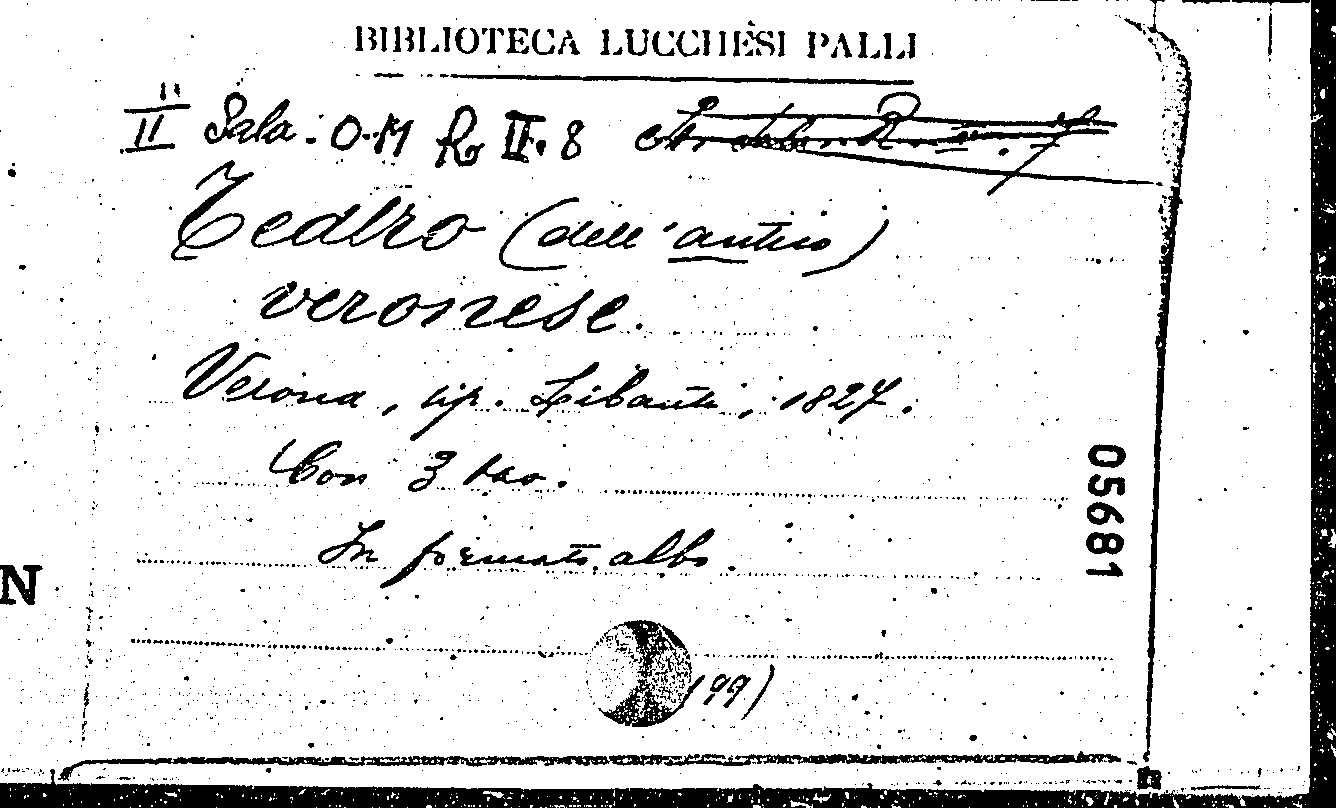 BIBLIOTECA LUCCHESI PALLI
II Sala: O-M R. II. 8
Teatro (dell'antico)
veronese.
Verona, tip. Libanti, 1827.
Con 3 tav.
In formato albo.
(99)
05681
N